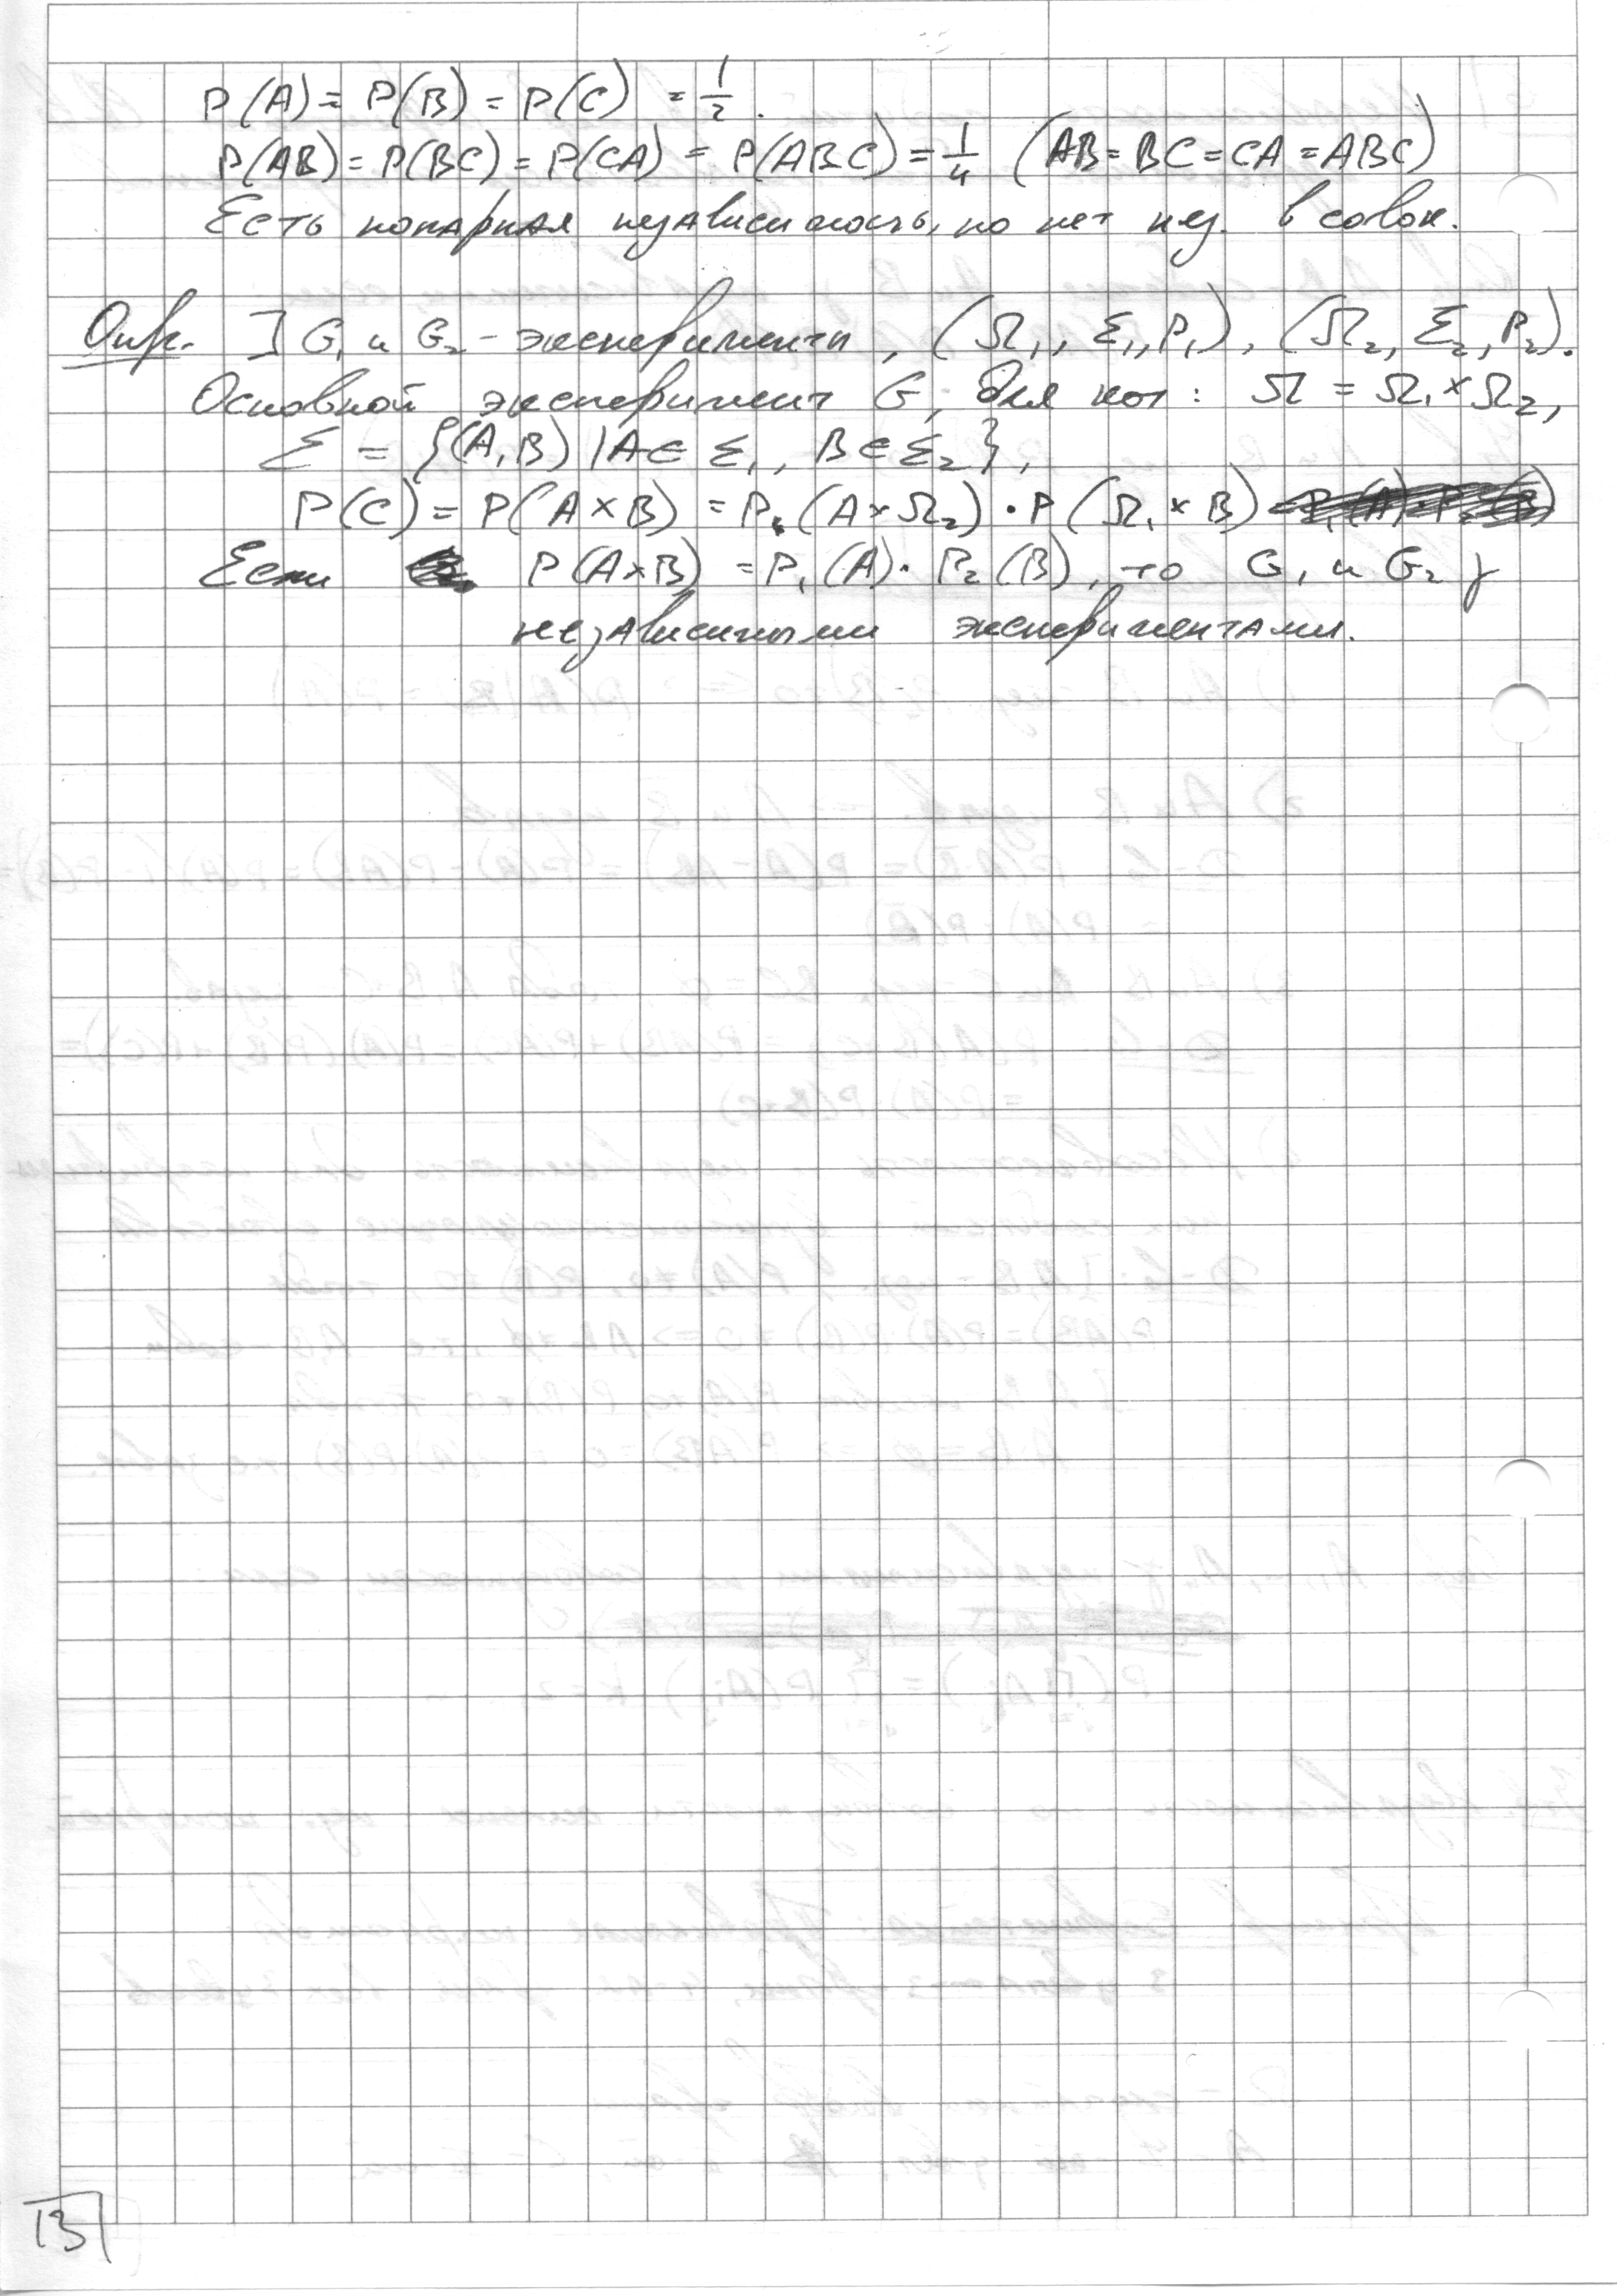 P(A) = P(B) = P(C) = 1/2.
P(AB) = P(BC) = P(CA) = P(ABC) = 1/4 (AB = BC = CA = ABC)
Есть попарная независимость, но нет нез. в совок.
Опр. ] G₁ и G₂ - эксперименты, (Ω₁, Σ₁, P₁), (Ω₂, Σ₂, P₂).
Основной эксперимент G, для кот: Ω = Ω₁ × Ω₂,
Σ = {(A, B) | A ∈ Σ₁, B ∈ Σ₂},
P(C) = P(A×B) = P(A×Ω₂) · P(Ω₁×B)
Если P(A×B) = P₁(A) · P₂(B), то G₁ и G₂
независимыми экспериментами.
13